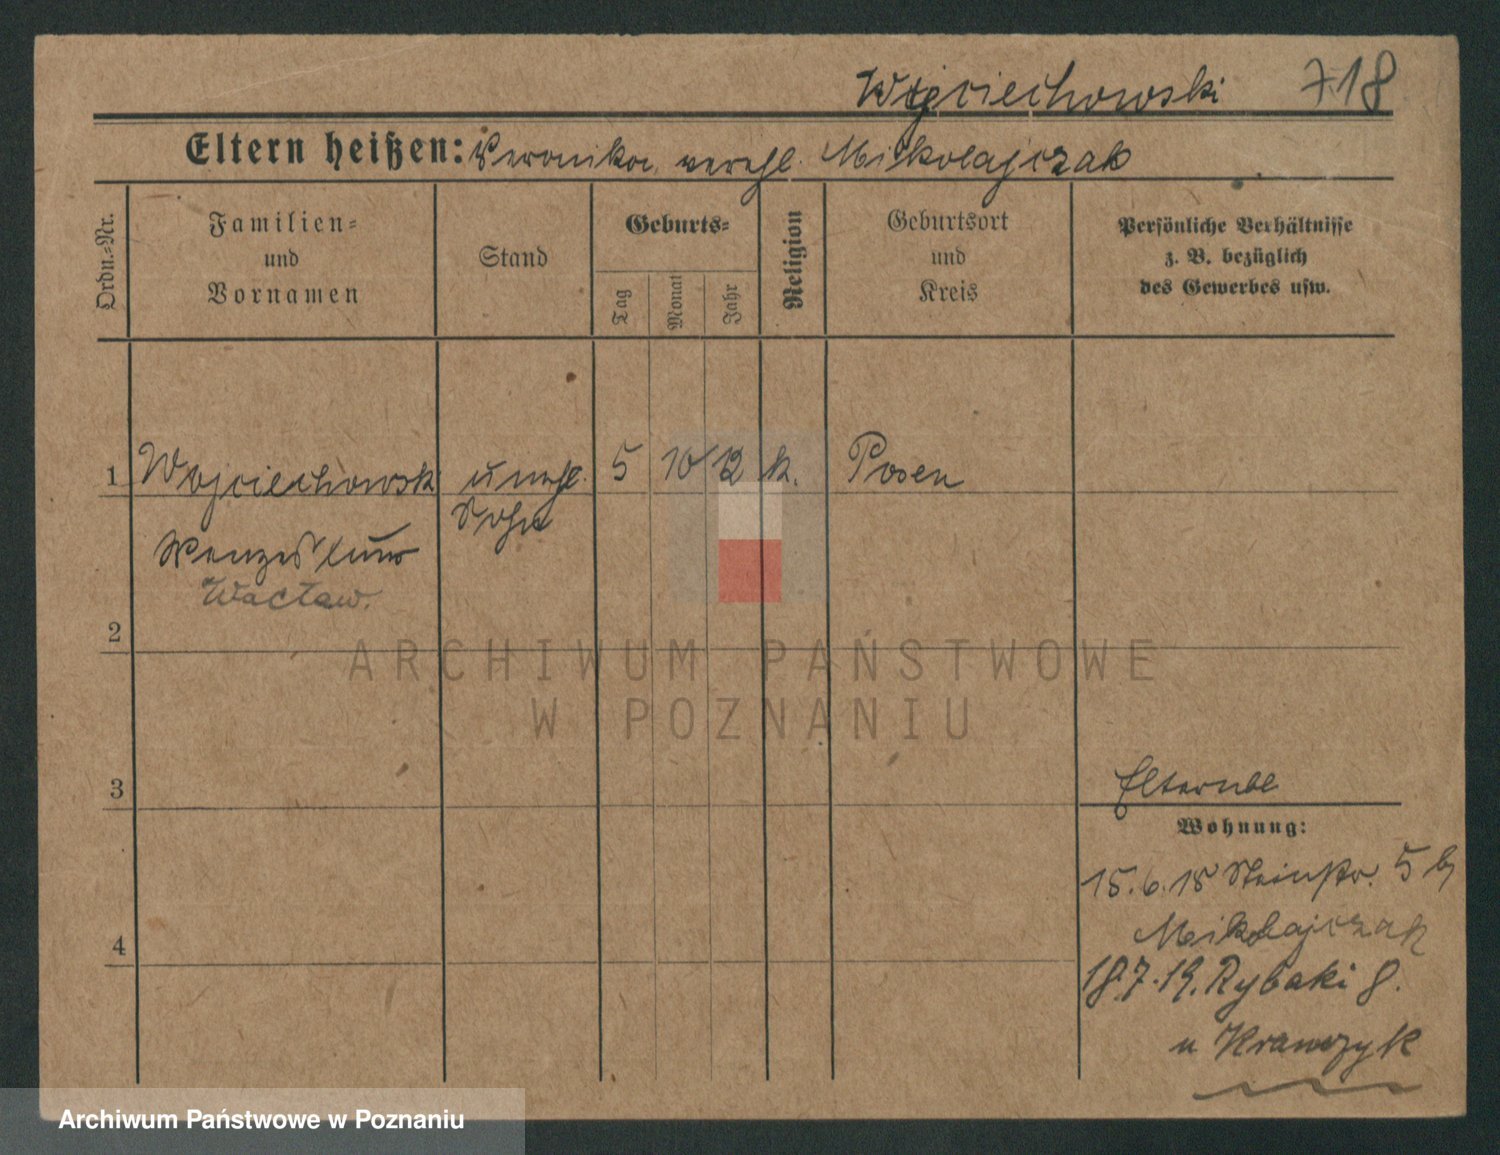 Wojciechowski 718
Eltern heißen: Veronika verehl. Mikolajczak
Ordn.=Nr.
Familien=
und
Vornamen
Stand
Geburts=
Tag
Monat
Jahr
Religion
Geburtsort
und
Kreis
Persönliche Verhältnisse
z. B. bezüglich
des Gewerbes usw.
1 Wojciechowski unehl. 5 10 12 k. Posen
Sohn
Wenzeslaus
Wacław.
2
ARCHIWUM PAŃSTWOWE
W POZNANIU
3
Wohnung:
15.6.18 Steinstr. 5 b
Mikolajczak
4
18.7.19. Rybaki 8.
u Krawczyk
Archiwum Państwowe w Poznaniu